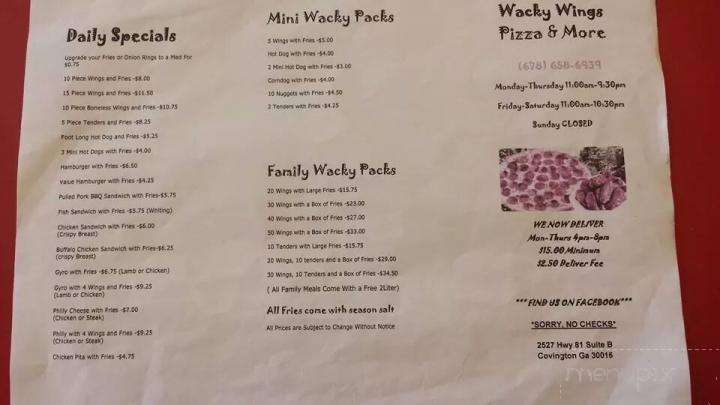 Daily Specials
Upgrade your Fries or Onion Rings to a Med For
$0.75
10 Piece Wings and Fries -$8.00
15 Piece Wings and Fries -$11.50
10 Piece Boneless Wings and Fries -$10.75
5 Piece Tenders and Fries -$8.25
Foot Long Hot Dog and Fries -$5.25
3 Mini Hot Dogs with Fries -$4.00
Hamburger with Fries -$6.50
Value Hamburger with Fries -$4.25
Pulled Pork BBQ Sandwich with Fries-$5.75
Fish Sandwich with Fries -$5.75 (Whiting)
Chicken Sandwich with Fries -$6.00
(Crispy Breast)
Buffalo Chicken Sandwich with Fries-$6.25
(crispy Breast)
Gyro with Fries -$6.75 (Lamb or Chicken)
Gyro with 4 Wings and Fries -$9.25
(Lamb or Chicken)
Philly Cheese with Fries -$7.00
(Chicken or Steak)
Philly with 4 Wings and Fries -$9.25
(Chicken or Steak)
Chicken Pita with Fries -$4.75
Mini Wacky Packs
5 Wings with Fries -$5.00
Hot Dog with Fries -$4.00
2 Mini Hot Dog with Fries -$3.00
Corndog with Fries -$4.00
10 Nuggets with Fries -$4.50
2 Tenders with Fries -$4.25
Family Wacky Packs
20 Wings with Large Fries -$15.75
30 Wings with a Box of Fries -$23.00
40 Wings with a Box of Fries -$27.00
50 Wings with a Box of Fries -$33.00
10 Tenders with Large Fries -$15.75
20 Wings, 10 tenders and a Box of Fries -$29.00
30 Wings, 10 Tenders and a Box of Fries -$34.50
( All Family Meals Come With a Free 2Liter)
All Fries come with season salt
All Prices are Subject to Change Without Notice
Wacky Wings
Pizza & More
(678) 658-6939
Monday-Thursday 11:00am-9:30pm
Friday-Saturday 11:00am-10:30pm
Sunday CLOSED
WE NOW DELIVER
Mon-Thurs 4pm-8pm
$15.00 Minimum
$2.50 Deliver Fee
***FIND US ON FACEBOOK***
*SORRY, NO CHECKS*
2527 Hwy 81 Suite B
Covington Ga 30016
menupix